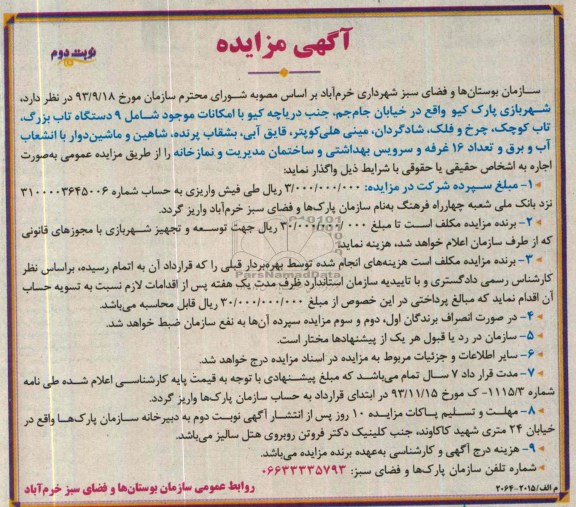 آگهی مزایده
نوبت دوم
سـازمان بوستان‌ها و فضای سبز شهرداری خرم‌آباد بر اساس مصوبه شورای محترم سازمان مورخ ۹۳/۹/۱۸ در نظر دارد،
شهربازی پارک کیو واقع در خیابان جام‌جم، جنب دریاچه کیو با امکانات موجود شامل ۹ دستگاه تاب بزرگ،
تاب کوچک، چرخ و فلک، شادگردان، مینی هلی‌کوپتر، قایق آبی، بشقاب پرنده، شاهین و ماشین‌دوار با انشعاب
آب و برق و تعداد ۱۶ غرفه و سرویس بهداشتی و ساختمان مدیریت و نمازخانه را از طریق مزایده عمومی به‌صورت
اجاره به اشخاص حقیقی یا حقوقی با شرایط ذیل واگذار نماید:
۱- مبلغ سـپرده شرکت در مزایده: ۳/۰۰۰/۰۰۰/۰۰۰ ریال طی فیش واریزی به حساب شماره ۳۱۰۰۰۰۳۶۴۵۰۰۶
نزد بانک ملی شعبه چهارراه فرهنگ به‌نام سازمان پارک‌ها و فضای سبز خرم‌آباد واریز گردد.
۲- برنده مزایده مکلف اسـت تا مبلغ ۳۰/۰۰۰/۰۰۰/۰۰۰ ریال جهت توسـعه و تجهیز شـهربازی با مجوزهای قانونی
که از طرف سازمان اعلام خواهد شد، هزینه نماید.
۳- برنده مزایده مکلف است هزینه‌های انجام شده توسط بهره‌بردار قبلی را که قرارداد آن به اتمام رسیده، براساس نظر
کارشناس رسمی دادگستری و با تاییدیه سازمان استاندارد ظرف مدت یک هفته پس از اقدامات لازم نسبت به تسویه حساب
آن اقدام نماید که مبالغ پرداختی در این خصوص از مبلغ ۳۰/۰۰۰/۰۰۰/۰۰۰ ریال قابل محاسبه می‌باشد.
۴- در صورت انصراف برندگان اول، دوم و سوم مزایده سپرده آن‌ها به نفع سازمان ضبط خواهد شد.
۵- سازمان در رد یا قبول هر یک از پیشنهادها مختار است.
۶- سایر اطلاعات و جزئیات مربوط به مزایده در اسناد مزایده درج خواهد شد.
۷- مدت قرار داد ۷ سال تمام می‌باشد که مبلغ پیشنهادی با توجه به قیمت پایه کارشناسی اعلام شده طی نامه
شماره ۱۱۱۵/۳- ک مورخ ۹۳/۱۱/۱۵ در ابتدای قرارداد به حساب سازمان پارک‌ها واریز گردد.
۸- مهلـت و تسـلیم پـاکات مزایـده ۱۰ روز پس از انتشـار آگهی نوبـت دوم به دبیرخانه سـازمان پارک‌هـا واقع در
خیابان ۲۴ متری شهید کاکاوند، جنب کلینیک دکتر فروتن روبروی هتل سالیز می‌باشد.
۹- هزینه درج آگهی و کارشناسی به‌عهده برنده مزایده می‌باشد.
شماره تلفن سازمان پارک‌ها و فضای سبز: ۰۶۶۳۳۳۳۵۷۹۳
روابط عمومی سازمان بوستان‌ها و فضای سبز خرم‌آباد
م الف/۲۰۱۵-۲۰۶۴
ParsNamadData